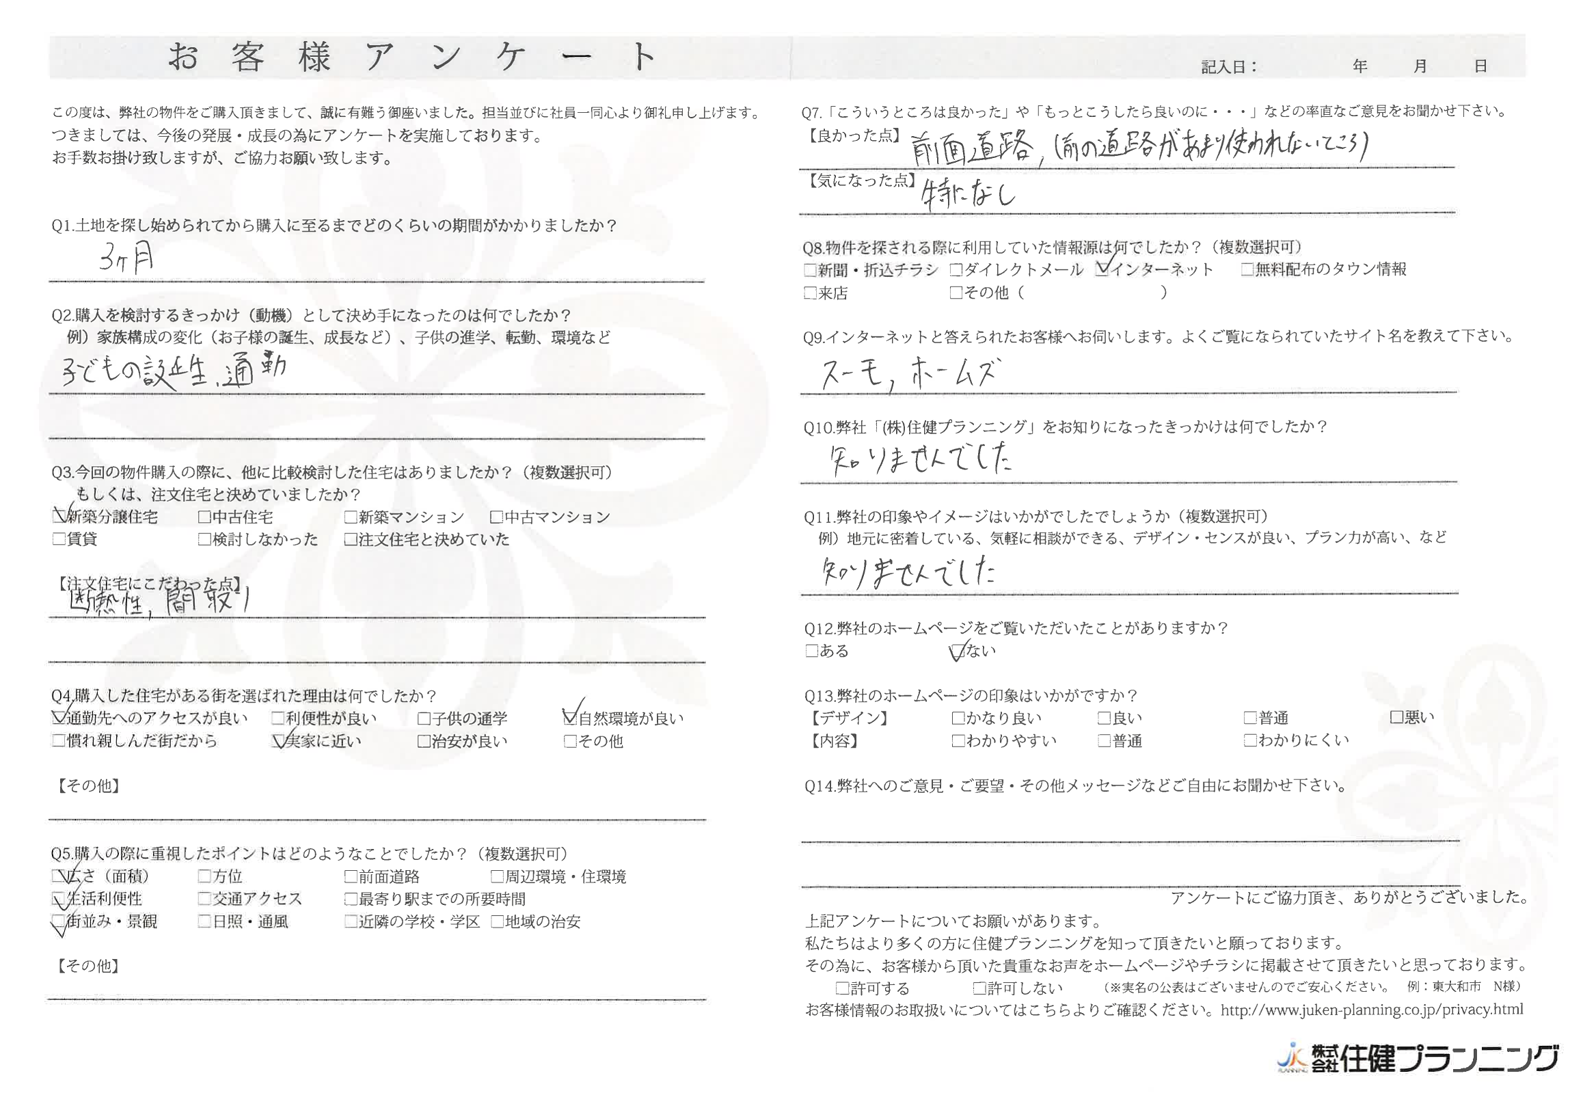 お客様アンケート
記入日： 年 月 日
この度は、弊社の物件をご購入頂きまして、誠に有難う御座いました。担当並びに社員一同心より御礼申し上げます。
つきましては、今後の発展・成長の為にアンケートを実施しております。
お手数お掛け致しますが、ご協力お願い致します。
Q1.土地を探し始められてから購入に至るまでどのくらいの期間がかかりましたか？
3ヶ月
Q2.購入を検討するきっかけ（動機）として決め手になったのは何でしたか？
例）家族構成の変化（お子様の誕生、成長など）、子供の進学、転勤、環境など
子どもの誕生、通勤
Q3.今回の物件購入の際に、他に比較検討した住宅はありましたか？（複数選択可）
もしくは、注文住宅と決めていましたか？
☑新築分譲住宅 □中古住宅 □新築マンション □中古マンション
□賃貸 □検討しなかった □注文住宅と決めていた
【注文住宅にこだわった点】
断熱性, 間取り
Q4.購入した住宅がある街を選ばれた理由は何でしたか？
☑通勤先へのアクセスが良い □利便性が良い □子供の通学 ☑自然環境が良い
□慣れ親しんだ街だから ☑実家に近い □治安が良い □その他
【その他】
Q5.購入の際に重視したポイントはどのようなことでしたか？（複数選択可）
☑広さ（面積） □方位 □前面道路 □周辺環境・住環境
☑生活利便性 □交通アクセス □最寄り駅までの所要時間
☑街並み・景観 □日照・通風 □近隣の学校・学区 □地域の治安
【その他】
Q7.「こういうところは良かった」や「もっとこうしたら良いのに・・・」などの率直なご意見をお聞かせ下さい。
【良かった点】前面道路,（前の道路があまり使われないところ）
【気になった点】特になし
Q8.物件を探される際に利用していた情報源は何でしたか？（複数選択可）
□新聞・折込チラシ □ダイレクトメール ☑インターネット □無料配布のタウン情報
□来店 □その他（ ）
Q9.インターネットと答えられたお客様へお伺いします。よくご覧になられていたサイト名を教えて下さい。
スーモ, ホームズ
Q10.弊社「(株)住健プランニング」をお知りになったきっかけは何でしたか？
知りませんでした
Q11.弊社の印象やイメージはいかがでしたでしょうか（複数選択可）
例）地元に密着している、気軽に相談ができる、デザイン・センスが良い、プラン力が高い、など
知りませんでした
Q12.弊社のホームページをご覧いただいたことがありますか？
□ある ☑ない
Q13.弊社のホームページの印象はいかがですか？
【デザイン】 □かなり良い □良い □普通 □悪い
【内容】 □わかりやすい □普通 □わかりにくい
Q14.弊社へのご意見・ご要望・その他メッセージなどご自由にお聞かせ下さい。
アンケートにご協力頂き、ありがとうございました。
上記アンケートについてお願いがあります。
私たちはより多くの方に住健プランニングを知って頂きたいと願っております。
その為に、お客様から頂いた貴重なお声をホームページやチラシに掲載させて頂きたいと思っております。
□許可する □許可しない （※実名の公表はございませんのでご安心ください。 例：東大和市 N様）
お客様情報のお取扱いについてはこちらよりご確認ください。http://www.juken-planning.co.jp/privacy.html
JK PLANNING 株式会社住健プランニング